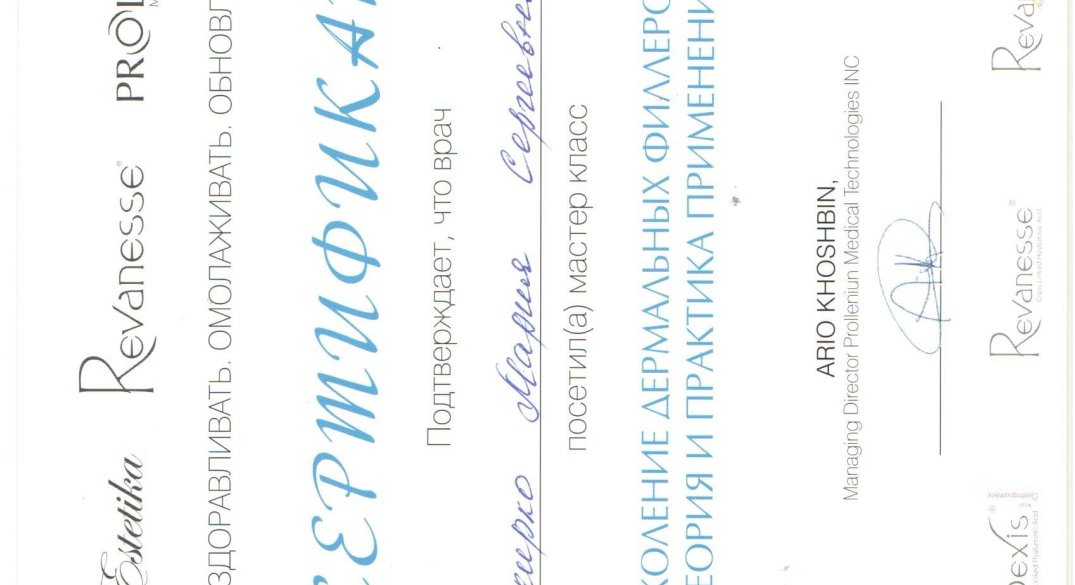 Estetika Revanesse® PRO
ЗДОРАВЛИВАТЬ. ОМОЛАЖИВАТЬ. ОБНОВЛ
ЕРТИФИКА
Подтверждает, что врач
Мария Сергеевн
посетил(а) мастер класс
КОЛЕНИЕ ДЕРМАЛЬНЫХ ФИЛЛЕРО
ЕОРИЯ И ПРАКТИКА ПРИМЕНЕНИ
ARIO KHOSHBIN,
Managing Director Prolleniun Medical Technologies INC
exis® Revanesse® Reva
Cross Linked Hyaluronic Acid